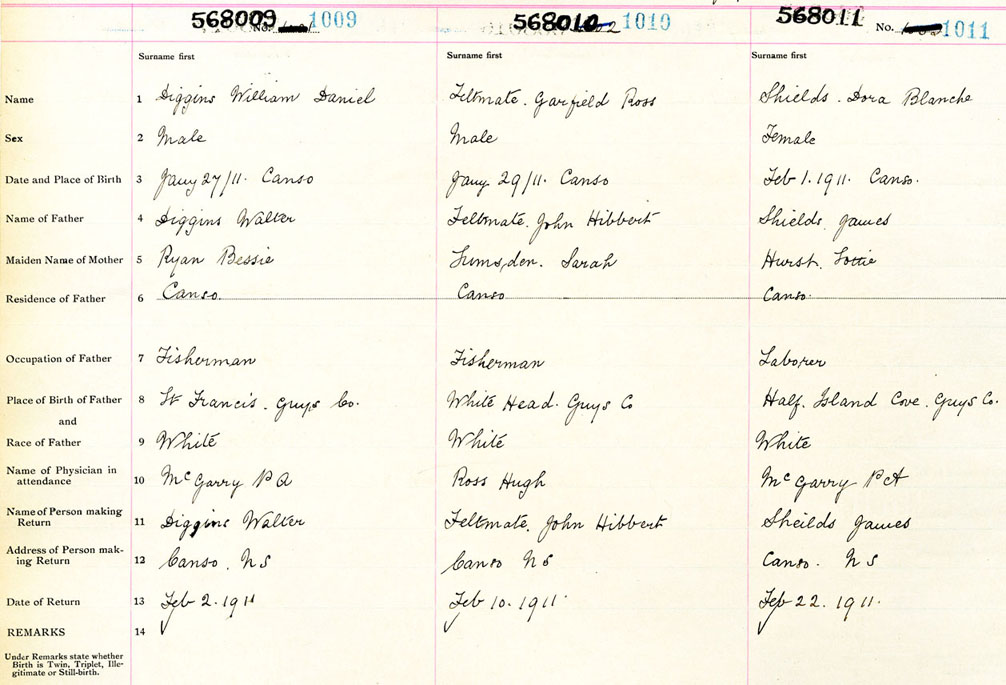 568009 No. 1009 568010 1010 568011 No. 1011
Surname first Surname first Surname first
Name 1 Diggins William Daniel Feltmate. Garfield Ross Shields. Dora Blanche
Sex 2 Male Male Female
Date and Place of Birth 3 Jany 27/11. Canso Jany 29/11. Canso Feb 1. 1911. Canso.
Name of Father 4 Diggins Walter Feltmate. John Hibbert Shields. James
Maiden Name of Mother 5 Ryan Bessie Lumsden. Sarah Hurst. Lottie
Residence of Father 6 Canso. Canso Canso.
Occupation of Father 7 Fisherman Fisherman Laborer
Place of Birth of Father 8 St Francis. Guys Co. White Head. Guys Co Half Island Cove. Guys Co.
and
Race of Father 9 White White White
Name of Physician in
attendance 10 McGarry P A Ross Hugh McGarry P A
Name of Person making
Return 11 Diggins Walter Feltmate. John Hibbert Sheilds James
Address of Person mak-
ing Return 12 Canso. N S Canso N S Canso. N S
Date of Return 13 Feb 2. 1911 Feb 10. 1911. Feb 22. 1911.
REMARKS 14
Under Remarks state whether
Birth is Twin, Triplet, Ille-
gitimate or Still-birth.